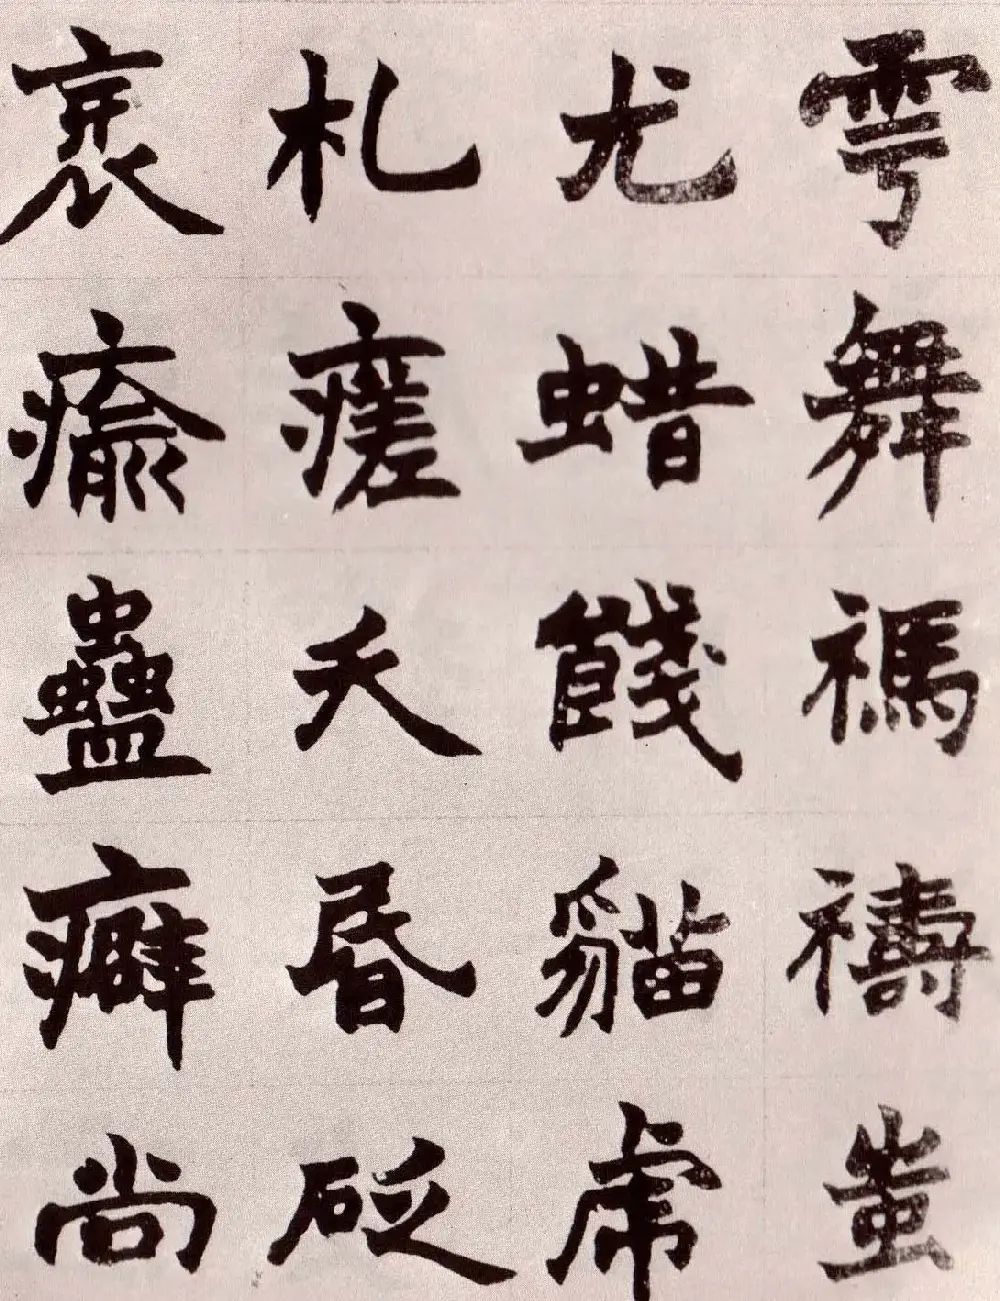 雩舞禡禱蚩
尤蜡餞貓虎
札瘥夭昏砭
哀瘉蠱癖尚